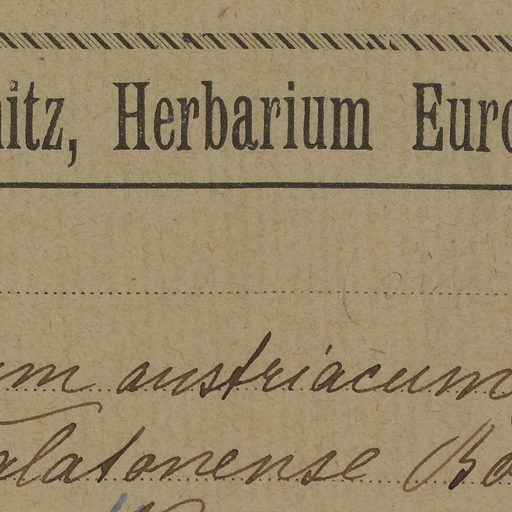 nitz, Herbarium Euro
um austriacum
alatonense Bo